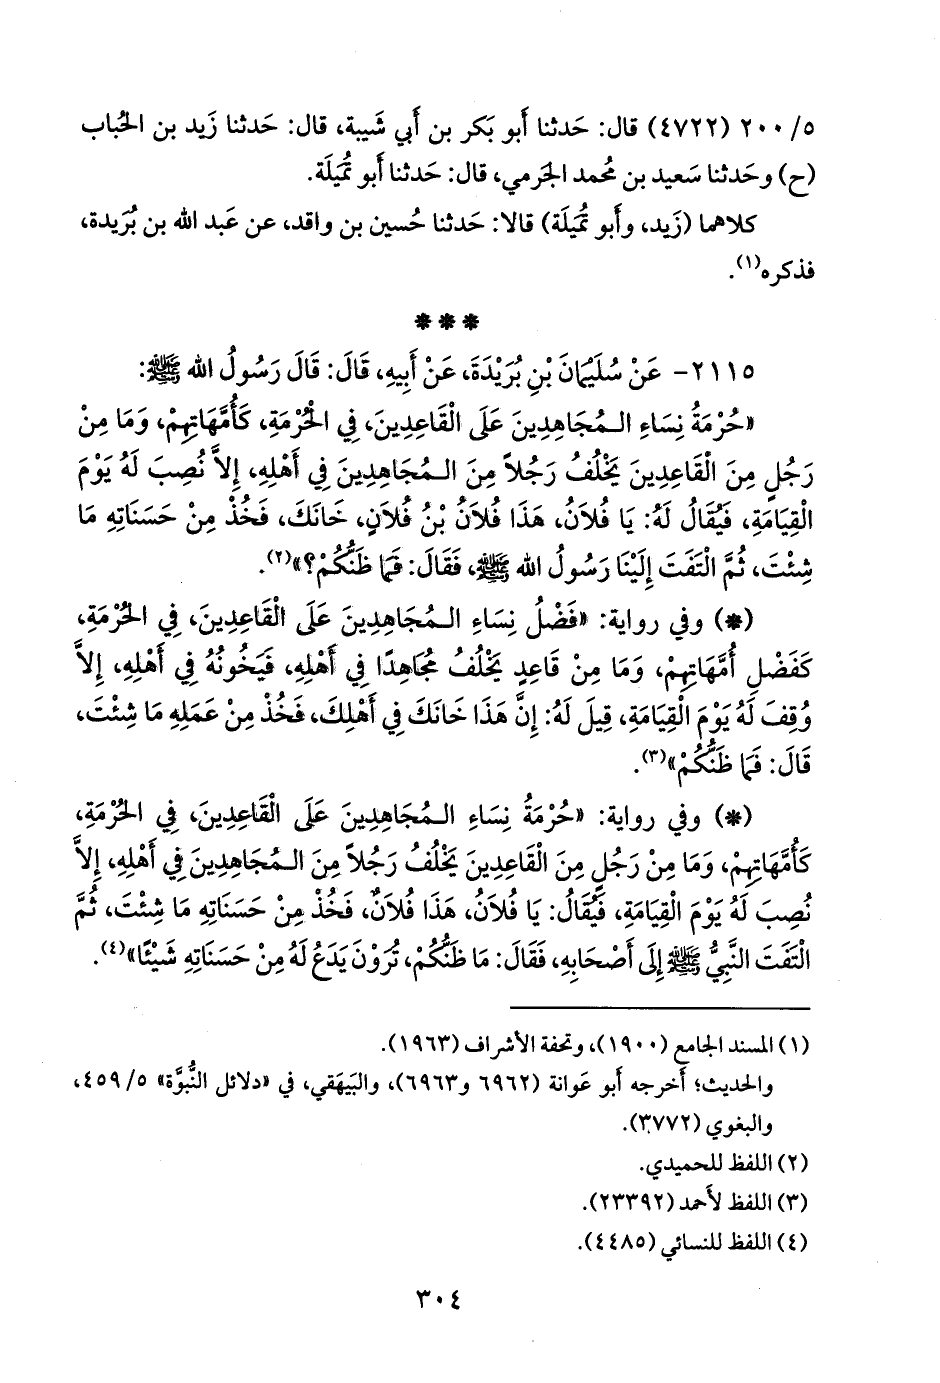 ٥/ ٢٠٠ (٤٧٢٢) قال: حَدثنا أَبو بَكر بن أَبي شَيبة، قال: حَدثنا زَيد بن الحُباب
(ح) وحَدثنا سَعيد بن مُحمد الجَرمي، قال: حَدثنا أَبو تُمَيلَة.
كلاهما (زَيد، وأَبو تُمَيلَة) قالا: حَدثنا حُسين بن واقد، عن عَبد الله بن بُرَيدة،
فذكره(١).
***
٢١١٥- عَنْ سُلَيْمَانَ بْنِ بُرَيْدَةَ، عَنْ أَبِيهِ، قَالَ: قَالَ رَسُولُ الله ﷺ:
«حُرْمَةُ نِسَاءِ الـمُجَاهِدِينَ عَلَى الْقَاعِدِينَ، فِي الْحُرْمَةِ، كَأُمَّهَاتِهِمْ، وَمَا مِنْ
رَجُلٍ مِنَ الْقَاعِدِينَ يَخْلُفُ رَجُلاً مِنَ الـمُجَاهِدِينَ فِي أَهْلِهِ، إِلاَّ نُصِبَ لَهُ يَوْمَ
الْقِيَامَةِ، فَيُقَالُ لَهُ: يَا فُلاَنُ، هَذَا فُلاَنُ بْنُ فُلاَنٍ، خَانَكَ، فَخُذْ مِنْ حَسَنَاتِهِ مَا
شِئْتَ، ثُمَّ الْتَفَتَ إِلَيْنَا رَسُولُ الله ﷺ، فَقَالَ: فَمَا ظَنُّكُمْ؟»(٢).
(*) وفي رواية: «فَضْلُ نِسَاءِ الـمُجَاهِدِينَ عَلَى الْقَاعِدِينَ، فِي الحُرْمَةِ،
كَفَضْلِ أُمَّهَاتِهِمْ، وَمَا مِنْ قَاعِدٍ يَخْلُفُ مُجَاهِدًا فِي أَهْلِهِ، فَيَخُونُهُ فِي أَهْلِهِ، إِلاَّ
وُقِفَ لَهُ يَوْمَ الْقِيَامَةِ، قِيلَ لَهُ: إِنَّ هَذَا خَانَكَ فِي أَهْلِكَ، فَخُذْ مِنْ عَمَلِهِ مَا شِئْتَ،
قَالَ: فَمَا ظَنُّكُمْ»(٣).
(*) وفي رواية: «حُرْمَةُ نِسَاءِ الـمُجَاهِدِينَ عَلَى الْقَاعِدِينَ، فِي الحُرْمَةِ،
كَأُمَّهَاتِهِمْ، وَمَا مِنْ رَجُلٍ مِنَ الْقَاعِدِينَ يَخْلُفُ رَجُلاً مِنَ الـمُجَاهِدِينَ فِي أَهْلِهِ، إِلاَّ
نُصِبَ لَهُ يَوْمَ الْقِيَامَةِ، فَيُقَالُ: يَا فُلاَنُ، هَذَا فُلاَنٌ، فَخُذْ مِنْ حَسَنَاتِهِ مَا شِئْتَ، ثُمَّ
الْتَفَتَ النَّبِيُّ ﷺ إِلَى أَصْحَابِهِ، فَقَالَ: مَا ظَنُّكُمْ، تُرَوْنَ يَدَعُ لَهُ مِنْ حَسَنَاتِهِ شَيْئًا»(٤).
(١) المسند الجامع (١٩٠٠)، وتحفة الأشراف (١٩٦٣).
والحديث؛ أَخرجه أَبو عَوانة (٦٩٦٢ و٦٩٦٣)، والبَيهَقي، في «دلائل النُّبوَّة» ٥/ ٤٥٩،
والبغوي (٣٧٧٢).
(٢) اللفظ للحميدي.
(٣) اللفظ لأَحمد (٢٣٣٩٢).
(٤) اللفظ للنسائي (٤٤٨٥).
٣٠٤